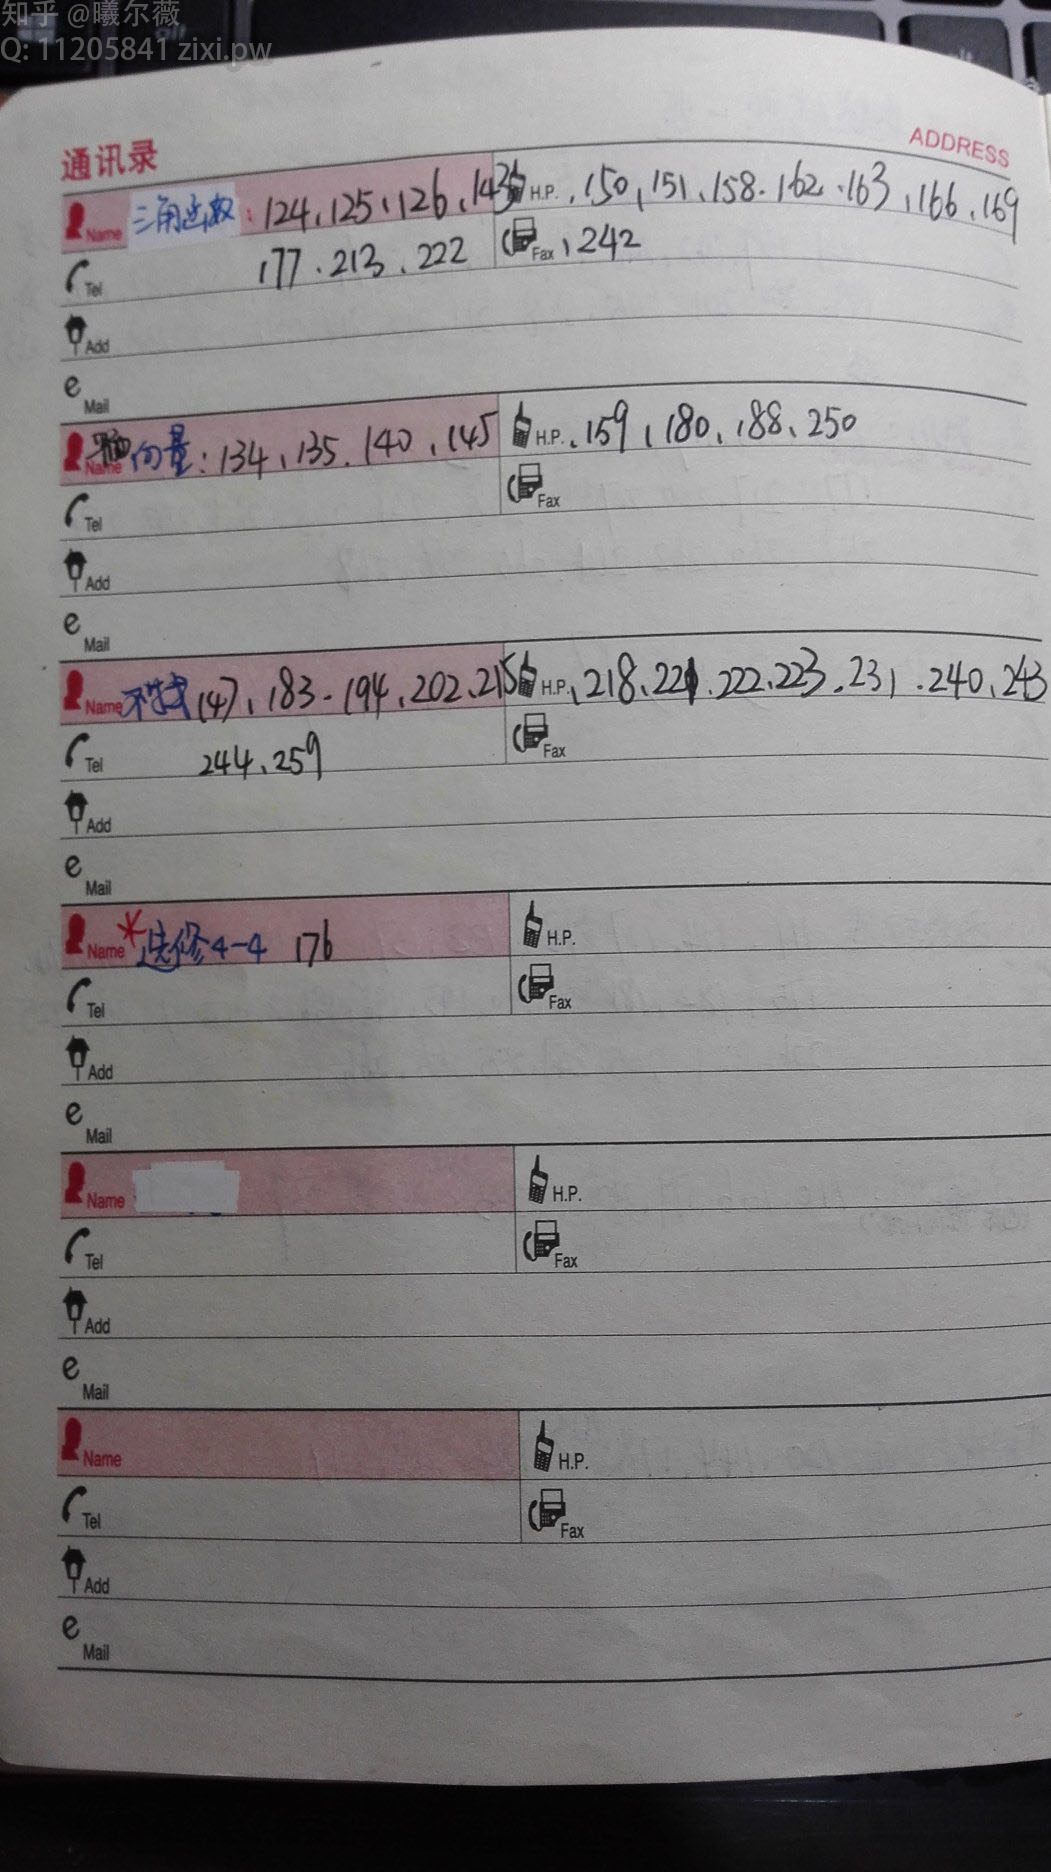 知乎 @曦尔薇
Q: 11205841 zixi.pw
通讯录
ADDRESS
Name 三角函数: 124、125、126、143 H.P. 、150、151、158、162、163、166、169
Tel 177、213、222 Fax 、242
Add
e Mail
Name 向量: 134、135、140、145 H.P. 、159、180、188、250
Tel Fax
Add
e Mail
Name 不等式 147、183、194、202、215 H.P. 、218、221、222、223、231、240、243
Tel 244、259 Fax
Add
e Mail
Name *选修4-4 176 H.P.
Tel Fax
Add
e Mail
Name H.P.
Tel Fax
Add
e Mail
Name H.P.
Tel Fax
Add
e Mail